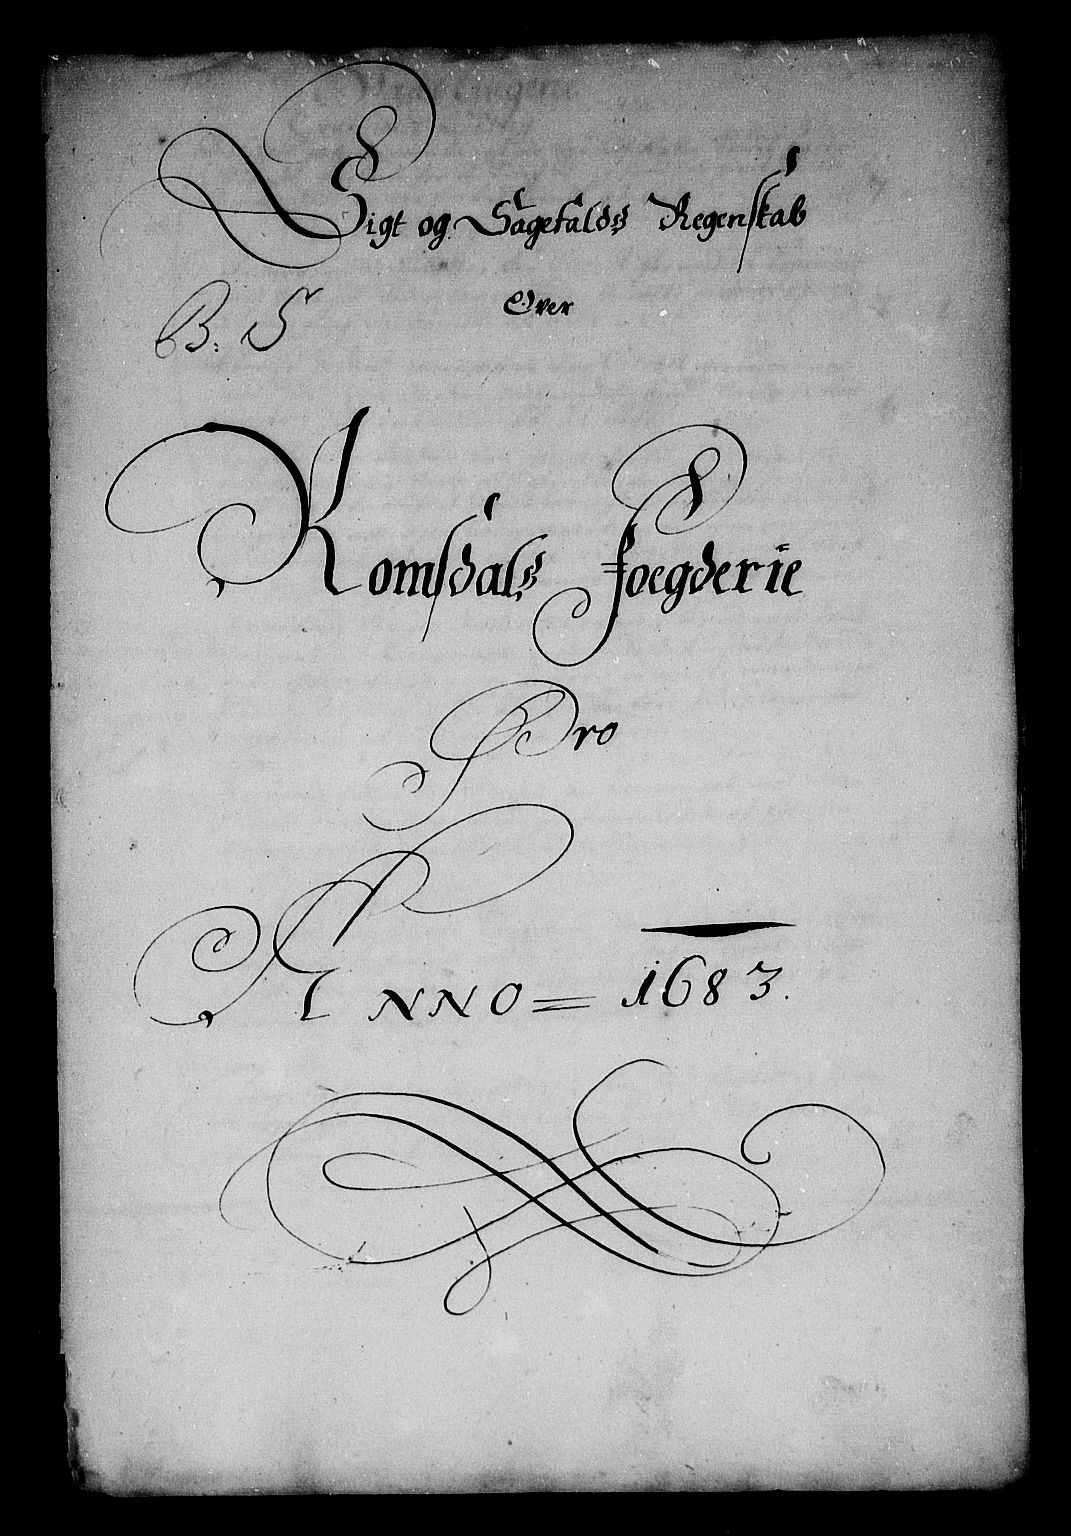 Sigt og Sagefalds Regenskab
Over
B: S
Romsdals Foegderie
Pro
ANNO = 1683.